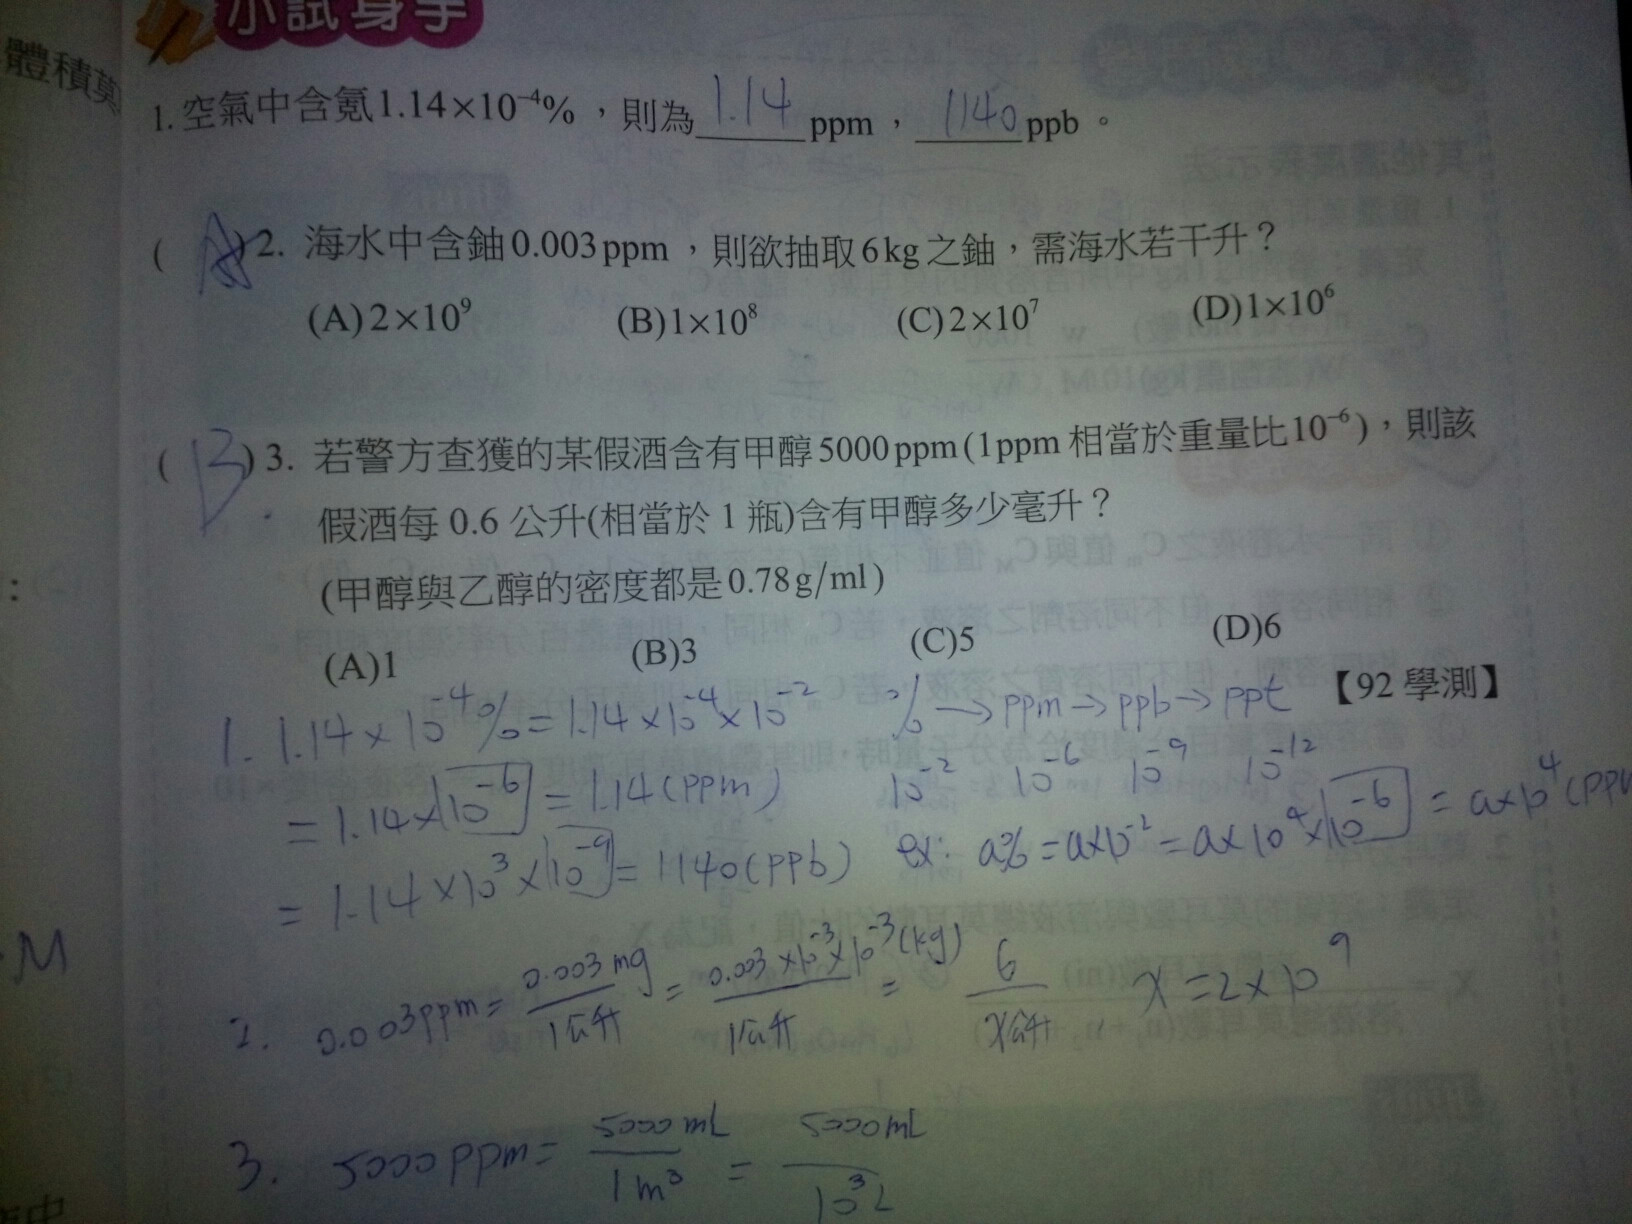 小試身手
體積莫
1. 空氣中含氪1.14×10⁻⁴%，則為 1.14 ppm， 1140 ppb。
( A ) 2. 海水中含鈾0.003ppm，則欲抽取6kg之鈾，需海水若干升？
(A)2×10⁹ (B)1×10⁸ (C)2×10⁷ (D)1×10⁶
( B ) 3. 若警方查獲的某假酒含有甲醇5000ppm(1ppm相當於重量比10⁻⁶)，則該
假酒每 0.6 公升(相當於 1 瓶)含有甲醇多少毫升？
(甲醇與乙醇的密度都是0.78g/ml)
(A)1 (B)3 (C)5 (D)6
【92 學測】
1. 1.14×10⁻⁴% = 1.14×10⁻⁴×10⁻² % → ppm → ppb → ppt
= 1.14×10⁻⁶ = 1.14 (ppm) 10⁻² 10⁻⁶ 10⁻⁹ 10⁻¹²
= 1.14×10³×10⁻⁹ = 1140 (ppb) ex: a% = a×10⁻² = a×10⁴×10⁻⁶ = a×10⁴ (ppm
M
2. 0.003ppm = 0.003mg/1公升 = 0.003×10⁻³×10⁻³(kg)/1公升 = 6/x公升 x = 2×10⁹
3. 5000ppm = 5000mL/1m³ = 5000mL/10³L